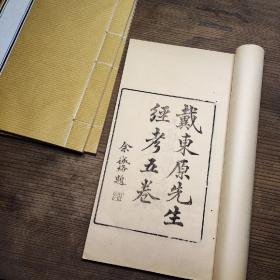 戴東原先生
經考五卷
余誠格題